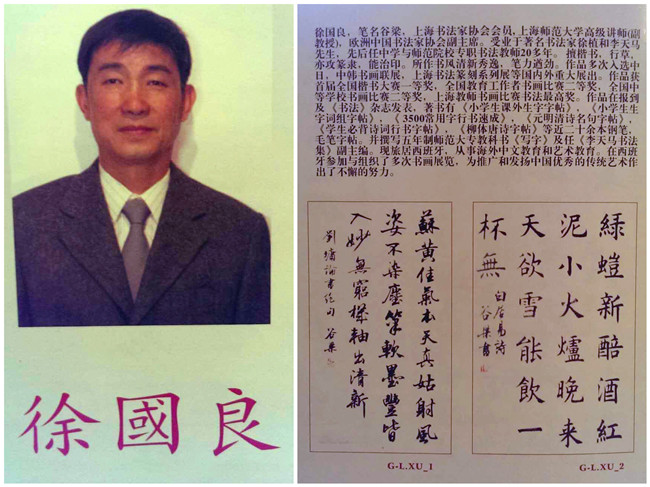 徐國良
徐国良，笔名谷梁，上海书法家协会会员，上海师范大学高级讲师(副
教授)，欧洲中国书法家协会副主席。受业于著名书法家徐植和李天马
先生，先后任中学与师范院校专职书法教师20多年。擅楷书，行草，
亦攻篆隶，能治印。所作书风清新秀逸，笔力遒劲。作品多次入选中
日，中韩书画联展，上海书法篆刻系列展等国内外重大展出。作品获
首届全国楷书大赛一等奖，全国教育工作者书画比赛二等奖，全国中
等学校书画比赛二等奖，上海教师书画比赛书法最高奖。作品在报刊
及《书法》杂志发表，著书有《小学生课外生字字帖》，《小学生生
字词组字帖》，《3500常用字行书速成》，《元明清诗名句字帖》，
《学生必背诗词行书字帖》，《柳体唐诗字帖》等近二十余本钢笔，
毛笔字帖。并撰写五年制师范大专教科书《写字》及任《李天马书法
集》副主编。现旅居西班牙，从事海外中文教育和艺术教育。在西班
牙参加与组织了多次书画展览，为推广和发扬中国优秀的传统艺术作
出了不懈的努力。
蘇黃佳氣本天真姑射風
姿不染塵筆軟墨豐皆
入妙無窮機軸出清新
劉墉論書絕句 谷梁
G-L.XU_1
綠螘新醅酒紅
泥小火爐晚来
天欲雪能飲一
杯無
白居易詩
谷梁書
G-L.XU_2